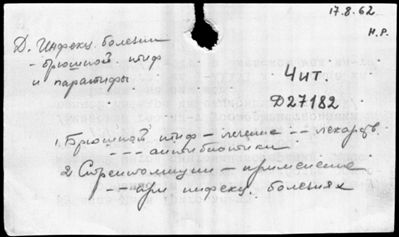 17.8.62
Н.Р.
Д. Инфекц. болезни
- брюшной тиф
и паратифы.
Чит.
Д27182
1. Брюшной тиф - лечение -- лекарств.
--- антибиотики
2 Стрептомицин - применение
--- при инфекц. болезнях